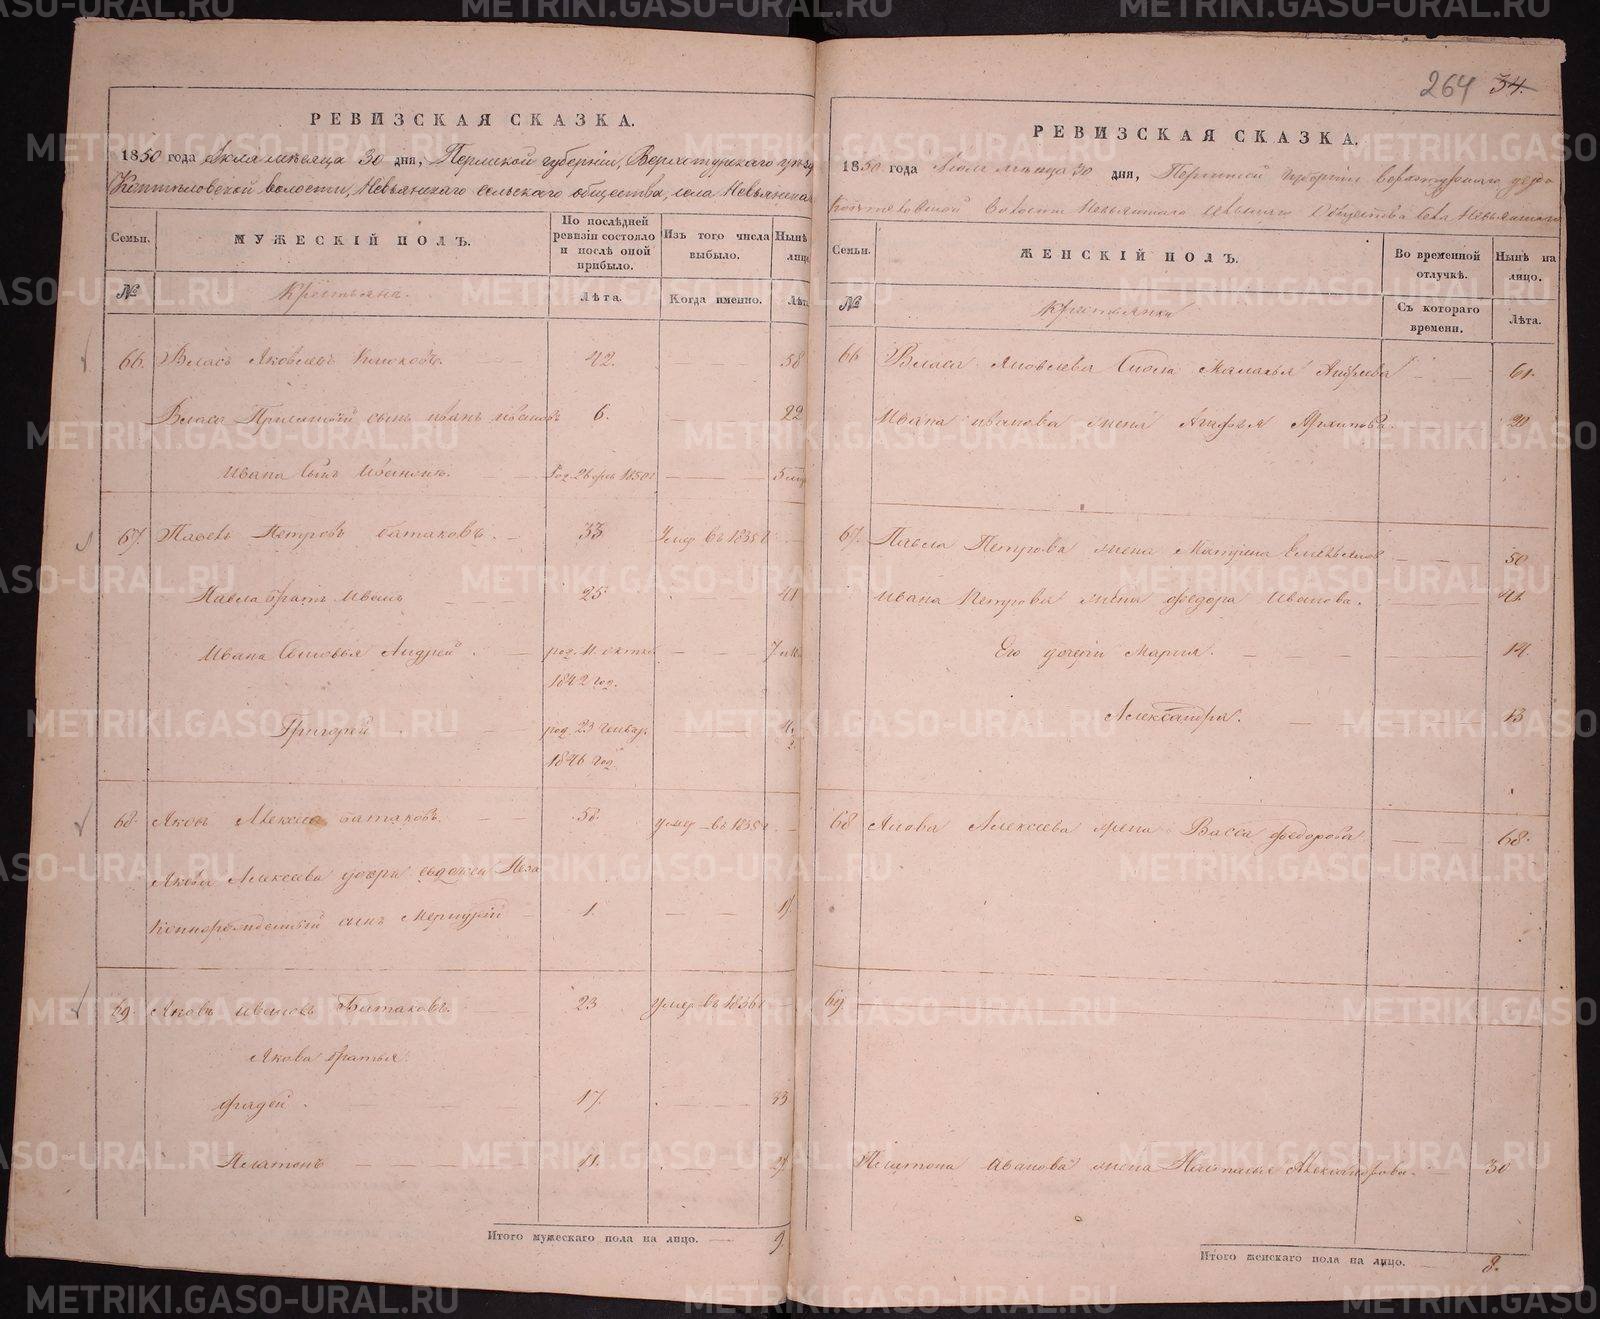 264 34.
РЕВИЗСКАЯ СКАЗКА.
1850 года Июля мѣсяца 30 дня, Пермской губерніи, Верхотурскаго уѣзда
Коптѣловской волости, Невьянскаго сельскаго общества, села Невьянска
Семьи.
МУЖЕСКІЙ ПОЛЪ.
По послѣдней ревизіи состояло и послѣ оной прибыло.
Изъ того числа выбыло.
Нынѣ лицо
№
Крестьяне.
Лѣта.
Когда именно.
Лѣта
66. Власъ Яковлевъ 42. — — 58
Власа Пріемный сынъ Иванъ Ивановъ 6. — — 22
Ивана сынъ — — Род. 26 фев 1850 — — 5
67. Павелъ Петровъ Батаковъ. — 33 Умер въ 1835
Павла братъ Иванъ — 25 — — 41
Ивана сыновья Андрей. — род. 11. октяб — — 7
1842 год.
Григорей — род. 23 Генвар — — 4
1846 год.
68. Яковъ Алексеевъ Батаковъ. — 58. умер въ 1835 —
Якова Алексеева дочери
сынъ Меркурій — 1. — — 17
69. Яковъ Ивановъ Батаковъ. — 23 умер въ 1836
Якова братья.
Фадей. — 17. — — 33
Платонъ — — 11. — — 27
Итого мужескаго пола на лицо. — 9
РЕВИЗСКАЯ СКАЗКА.
1850 года Июля мѣсяца 30 дня, Пермской губерніи Верхотурскаго уѣзда
Коптеловской волости Невьянскаго сельскаго общества села Невьянскаго
Семьи.
ЖЕНСКІЙ ПОЛЪ.
Во временной отлучкѣ.
Нынѣ на лицо.
№
Крестьянки
Съ котораго времени.
Лѣта.
66 Власа Яковлева жена Маланья Андреева — — 61.
Ивана Иванова жена Агафья Архипова. 20
67. Павла Петрова жена Матрена — — 50
Ивана Петрова жена Федора Иванова. — — 41.
Его дочери Марья. — — 14.
Александра. — — 13
68 Якова Алексеева жена Васса Федорова — — 68.
69
Платона Иванова жена Наталья Александрова. — 30
Итого женскаго пола на лицо. — 8.
METRIKI.GASO-URAL.RU